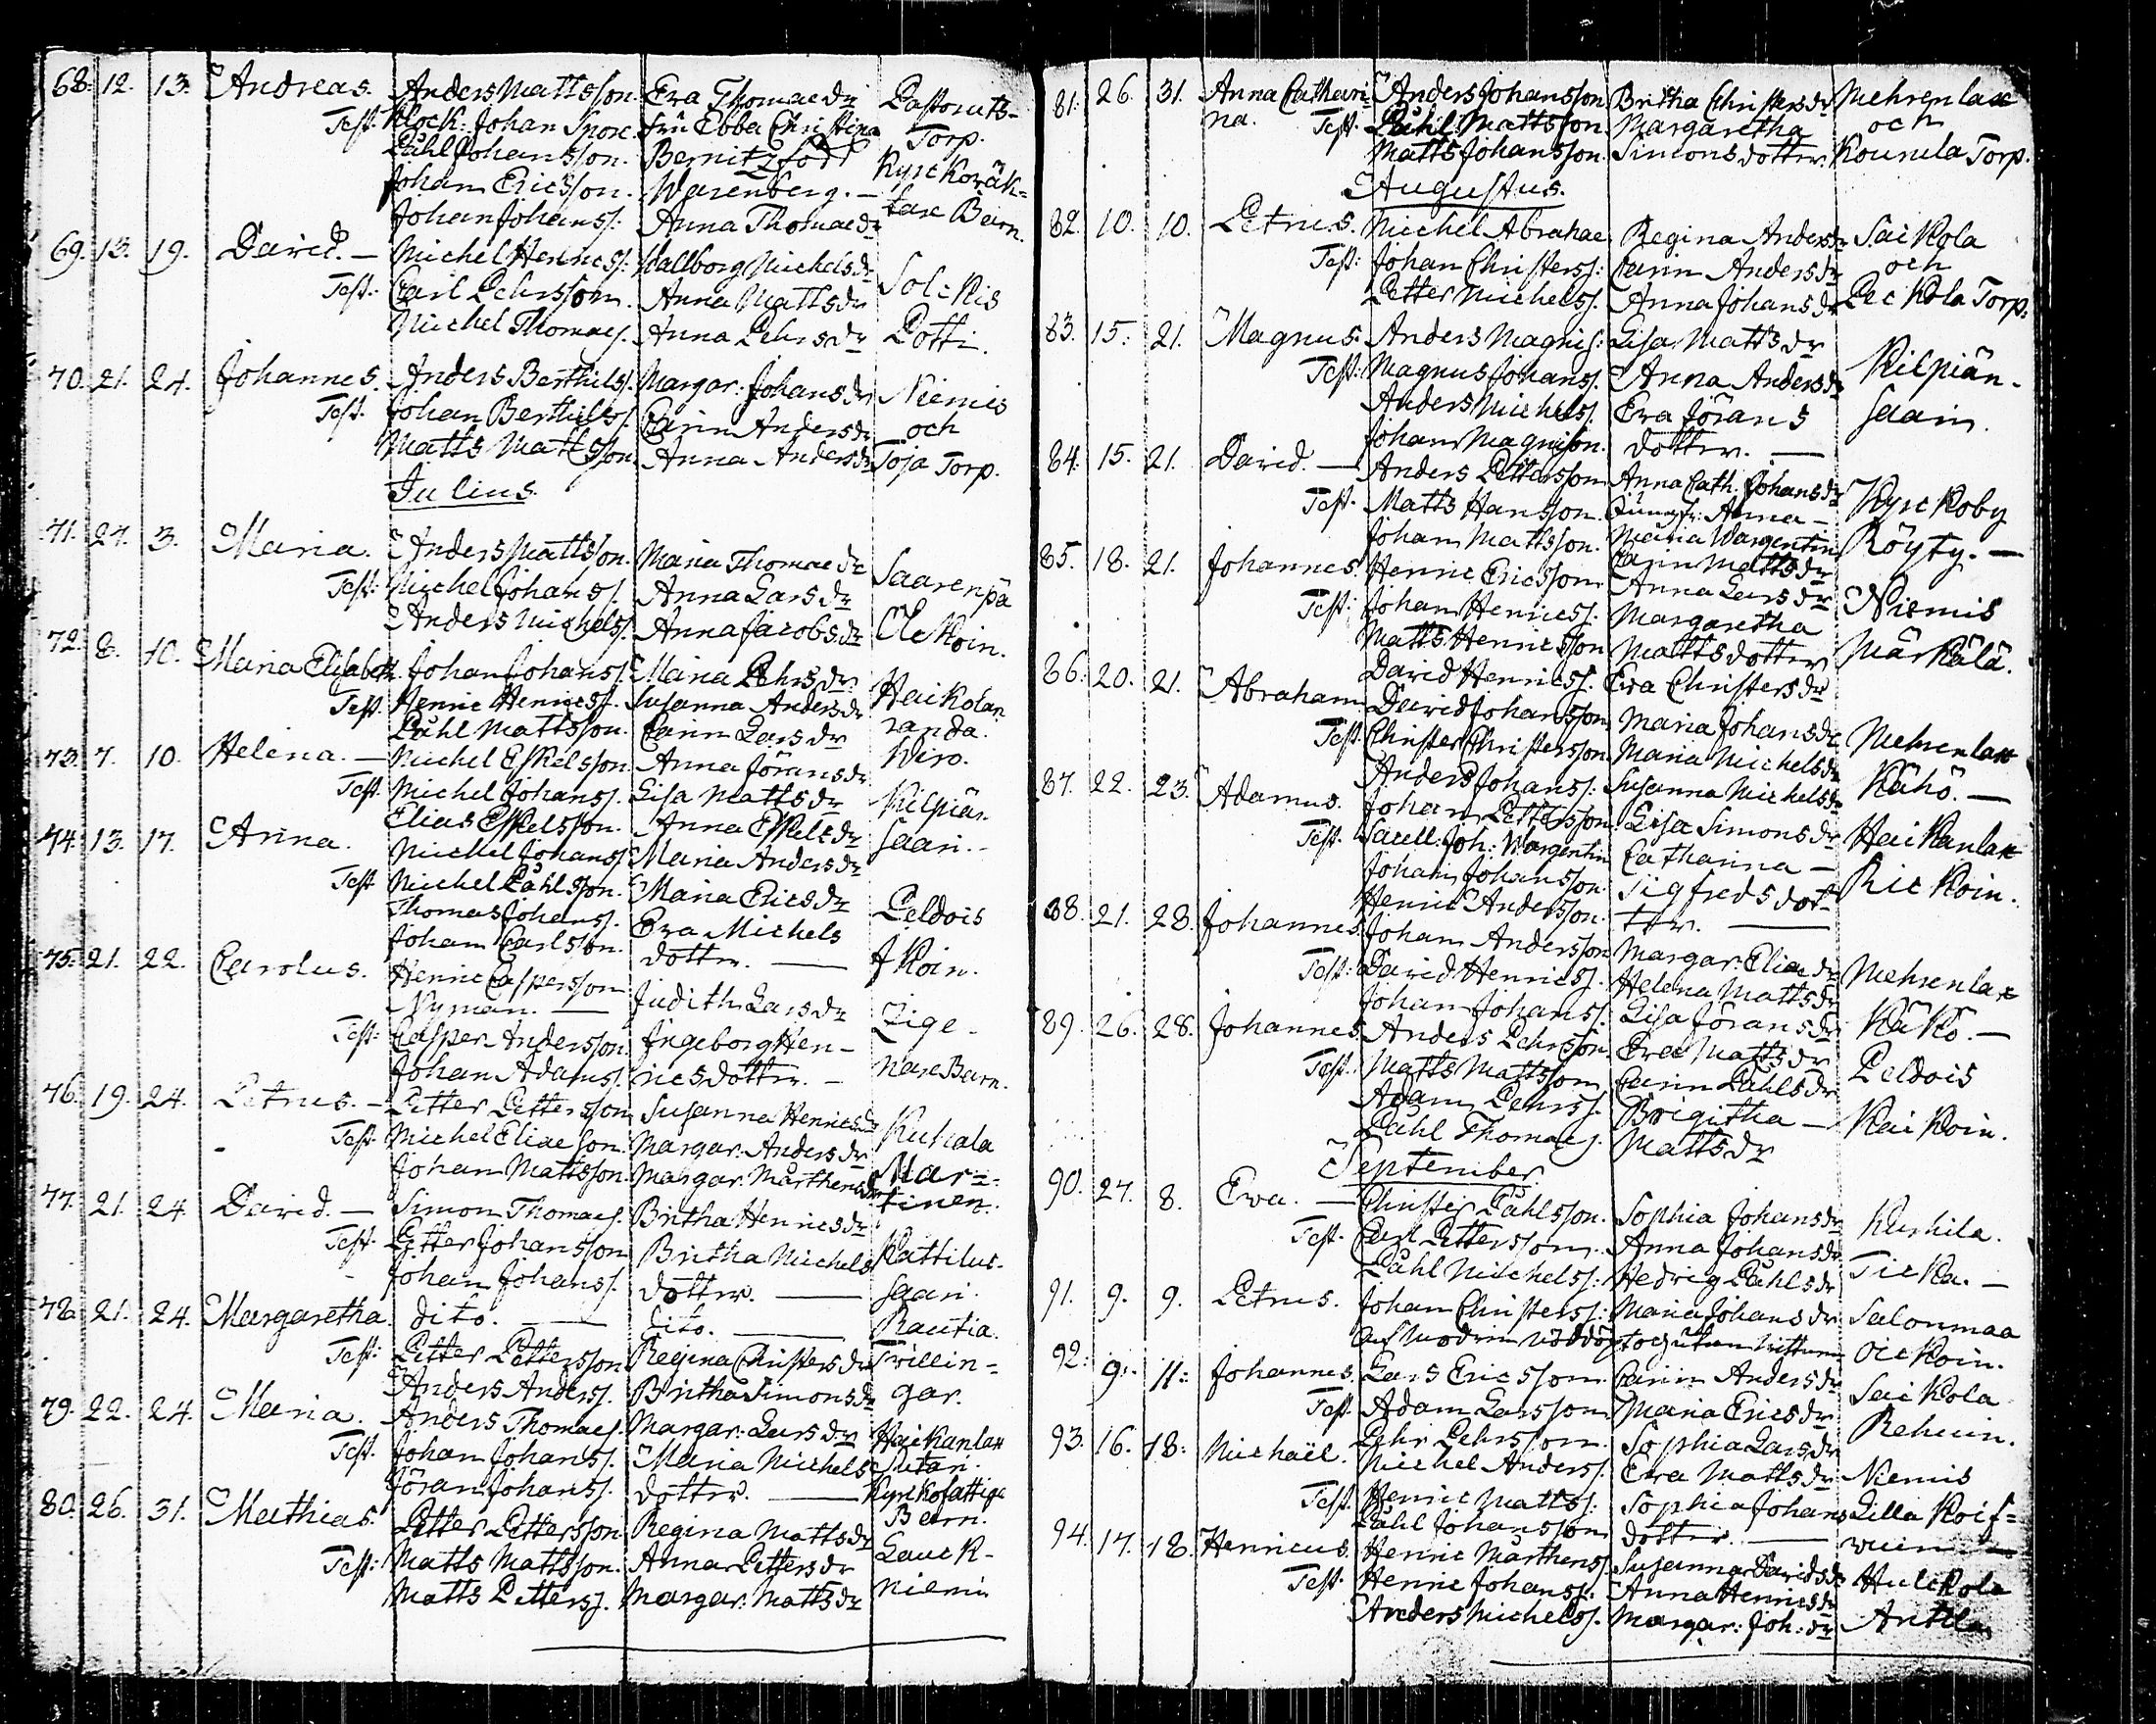 68. 12. 13. Andreas. Anders Mattsson. Eva Thomaedr Pastorats-
Test. Klock: Johan Snore. fru Ebba Christina Torp.
Påhl Johansson. Bernitz född Kyrckowäk-
Johan Ericsson. Warenberg. — tare Barn.
Johan Johanss. Anna Thomaedr
69. 13. 19. David. — Michel Henricss. Wallborg Michelsdr Solckis
Test: Carl Pehrsson. Anna Mattsdr Potti.
Michel Thomaes. Anna Pehrsdr
70. 21. 24. Johannes. Anders Berthilss. Margar. Johansdr Niemis
Test. Johan Berthilss. Carin Andersdr och
Matts Mattsson. Anna Andersdr Toja Torp.
Julius.
71. 27. 3. Maria. Anders Mattsson. Maria Thomaedr Saarenpä
Test: Michel Johanss. Anna Larsdr Ulckoin.
Anders Michelss. Anna Jacobsdr
72. 8. 10. Maria Elisabeth. Johan Johanss. Maria Pehrsdr Haikolan
Test. Henric Henricss. Susanna Andersdr randa.
Påhl Mattsson. Carin Larsdr
73. 7. 10. Helena. — Michel Eskelsson. Anna Jöransdr Wiro.
Test. Michel Johanss. Lisa Mattsdr Kilpiän
Elias Eskelsson. Anna Eskelsdr saari.
74. 13. 17. Anna. Michel Johanss. Maria Andersdr
Test. Michel Påhlsson. Maria Ericsdr Peldois
Thomas Johanss. Eva Michels Jkoin.
Johan Carlsson. dotter. —
75. 21. 22. Carolus. Henric Caspersson
Nyman. — Judith Larsdr Zige-
Test: Casper Andersson. Ingeborg Hen- nare Barn.
Johan Adamss. ricsdotter. —
76. 19. 24. Petrus. — Petter Pettersson Susanna Henricsdr Kukala
Test. Michel Eliaeson. Margar. Andersdr Mar-
Johan Mattsson. Margar. Mårthensdr tinen.
77. 21. 24. David. — Simon Thomaes. Britha Henricsdr
Test. Petter Johansson Britha Michels Kattilus.
Johan Johanss. dotter. — saari.
78. 21. 24. Margaretha. dito. — dito. — Rautia.
Test: Petter Pettersson. Regina Christersdr Twillin-
Anders Anderss. Britha Simonsdr gar.
79. 22. 24. Maria. Anders Thomaes. Margar: Larsdr Haikanlax
Test. Johan Johanss. Maria Michels Sutari.
Jöran Johanss. dotter. — Kyrkofattigs
80. 26. 31. Mathias. Petter Pettersson. Regina Mattsdr Barn.
Test: Matts Mattsson. Anna Pettersdr Lauck-
Matts Petterss. Margar: Mattsdr niemi
81. 26. 31. Anna Cathari- Anders Johansson Britha Christersdr Mehrenlax
na. Test. Påhl Mattsson. Margaretha och
Matts Johansson. Simonsdotter. Kounela Torp.
Augustus.
82. 10. 10. Petrus. Michel Abrahae. Regina Andersdr Saickola
Test: Johan Christerss: Carin Andersdr och
Petter Michelss. Anna Johansdr Peckola Torp.
83. 15. 21. Magnus. Anders Magnis: Lisa Mattsdr
Test: Magnus Johanss. Anna Andersdr Kilpiän-
Anders Michelss. Eva Jörans saari.
Johan Magnison. dotter. —
84. 15. 21. David. — Anders Pettersson Anna Cath. Johansdr
Test. Matts Hansson. Jungfr: Anna — Kyrckoby
Johan Mattsson. Maria Wargentin Röyty. —
85. 18. 21. Johannes. Henric Ericsson Carin Mattsdr
Test: Johan Henricss. Anna Larsdr Niemis
Matts Henricsson Margaretha Märkälä.
David Henricss. Mattsdotter
86. 20. 21. Abraham. David Johansson Eva Christersdr
Test. Christer Christersson Maria Johansdr Mehrenlax
Anders Johanss: Maria Michelsdr Kähö. —
87. 22. 23. Adamus. Johan Pettersson. Susanna Michelsdr
Test. Sacell: Joh: Wargentin Lisa Simonsdr Haikanlax
Johan Johansson. Catharina — Rickoin.
Henric Andersson. Sigfredsdot-
88. 21. 28. Johannes. Johan Andersson ter. —
Test: David Henricss. Margar: Eliaedr Mehrenlax
Johan Johanss. Helena Mattsdr Käkö. —
89. 26. 28. Johannes. Anders Pehrsson. Lisa Jöransdr
Test. Matts Mattsson Eva Mattsdr Peldois
Adam Pehrss. Carin Påhlsdr Kaikoin.
Påhl Thomaes. Brigitha —
Mattsdr
September.
90. 27. 8. Eva. — Christer Påhlsson. Sophia Johansdr Kurkila.
Test. Carl Pettersson. Anna Johansdr Ticka. —
Påhl Michelss: Hedvig Påhlsdr
91. 9. 9. Petrus. Johan Christerss: Maria Johansdr Salonmaa
Oickoin.
92. 9. 11. Johannes. Lars Ericsson Carin Andersdr Saickola
Test. Adam Larsson Maria Ericsdr Rehuin.
Pehr Pehrsson. Sophia Larsdr
93. 16. 18. Michaël. Michel Anderss. Eva Mattsdr Niemis
Test. Henric Mattss. Sophia Johans Lilla Koif-
Påhl Johansson dotter. —
94. 17. 18. Henricus. Henric Mårthenss. Susanna Davidsdr Hulckola
Test. Henric Johanss. Anna Henricsdr Anttila
Anders Michelss. Margar: Joh:dr